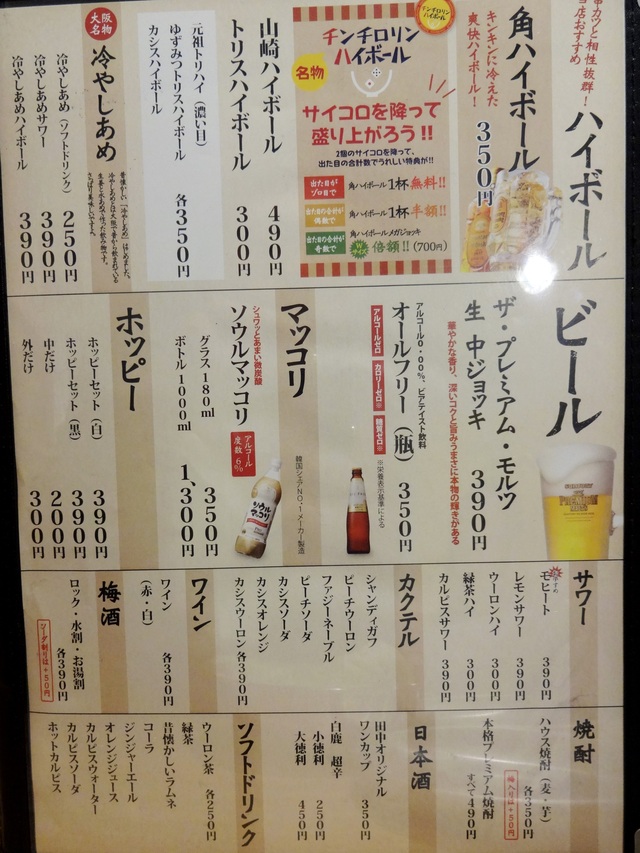 串カツと相性抜群！
当店おすすめ
ハイボール
角ハイボール
キンキンに冷えた
爽快ハイボール！
350円
チンチロリン
ハイボール
チンチロリン
ハイボール
名物
サイコロを降って
盛り上がろう!!
2個のサイコロを降って、
出た目の合計数でうれしい特典が!!
出た目が
ゾロ目で
角ハイボール1杯無料!!
出た目の合計が
偶数で
角ハイボール1杯半額!!
出た目の合計が
奇数で
角ハイボールメガジョッキ
倍額!!(700円)
山崎ハイボール 490円
トリスハイボール 300円
元祖トリハイ（濃い目）
ゆずみつトリスハイボール
カシスハイボール
各350円
大阪
名物
冷やしあめ
昔懐かしい「冷やしあめ」はじめました。
冷やしあめとは大阪で昔から飲まれている
生姜と水あめで作った飲み物です。
さっぱり美味しいですよ。
冷やしあめ（ソフトドリンク） 250円
冷やしあめサワー 390円
冷やしあめハイボール 390円
ビール
ザ・プレミアム・モルツ
生 中ジョッキ 390円
華やかな香り、深いコクと旨みうまさに本物の輝きがある
アルコール0.00%、ビアテイスト飲料
オールフリー（瓶） 350円
アルコールゼロ
カロリーゼロ※
糖質ゼロ※
※栄養表示基準による
マッコリ
韓国シェアNO.1メーカー製造
シュワッとあまい微炭酸
ソウルマッコリ
アルコール
度数6%
ソウル
マッコリ
グラス180ml 350円
ボトル1000ml 1,300円
ホッピー
ホッピーセット（白） 390円
ホッピーセット（黒） 390円
中だけ 200円
外だけ 300円
サワー
おすすめ
モヒート 390円
レモンサワー 390円
ウーロンハイ 300円
緑茶ハイ 300円
カルピスサワー 390円
カクテル
シャンディガフ
ピーチウーロン
ファジーネーブル
ピーチソーダ
カシスソーダ
カシスオレンジ
カシスウーロン 各390円
ワイン
ワイン
（赤・白） 各390円
梅酒
ロック・水割・お湯割
各390円
ソーダ割りは+50円
焼酎
ハウス焼酎（麦・芋）
各350円
梅入りは+50円
本格プレミアム焼酎
すべて490円
日本酒
田中オリジナル
ワンカップ 350円
白鹿 超辛
小徳利 250円
大徳利 450円
ソフトドリンク
ウーロン茶 各250円
緑茶
昔懐かしいラムネ
コーラ
ジンジャーエール
オレンジジュース
カルピスウォーター
カルピスソーダ
ホットカルピス